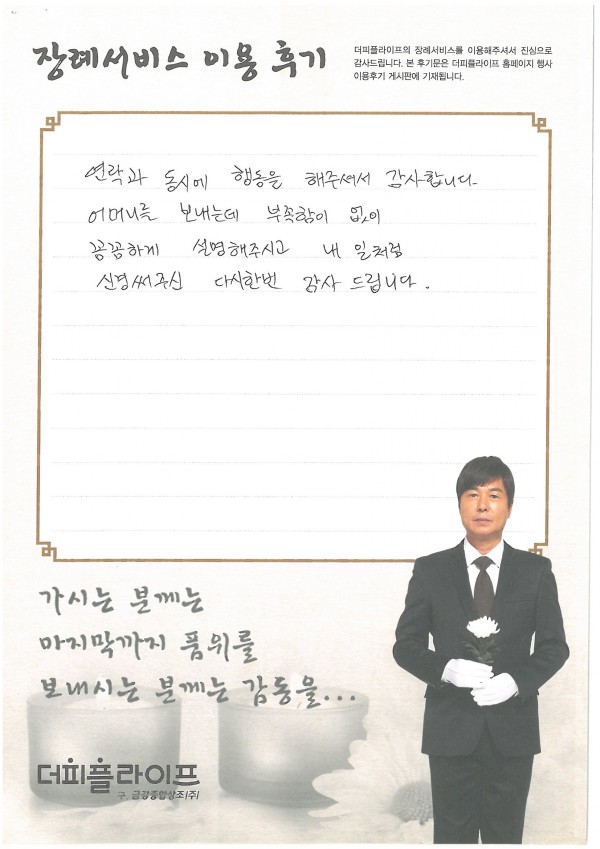 장례서비스 이용 후기
더피플라이프의 장례서비스를 이용해주셔서 진심으로
감사드립니다. 본 후기문은 더피플라이프 홈페이지 행사
이용후기 게시판에 기재됩니다.
연락과 동시에 행동을 해주셔서 감사합니다.
어머니를 보내는데 부족함이 없이
꼼꼼하게 설명해주시고 내 일처럼
신경써주신 다시한번 감사 드립니다.
가시는 분께는
마지막까지 품위를
보내시는 분께는 감동을...
더피플라이프
구. 금강종합상조(주)